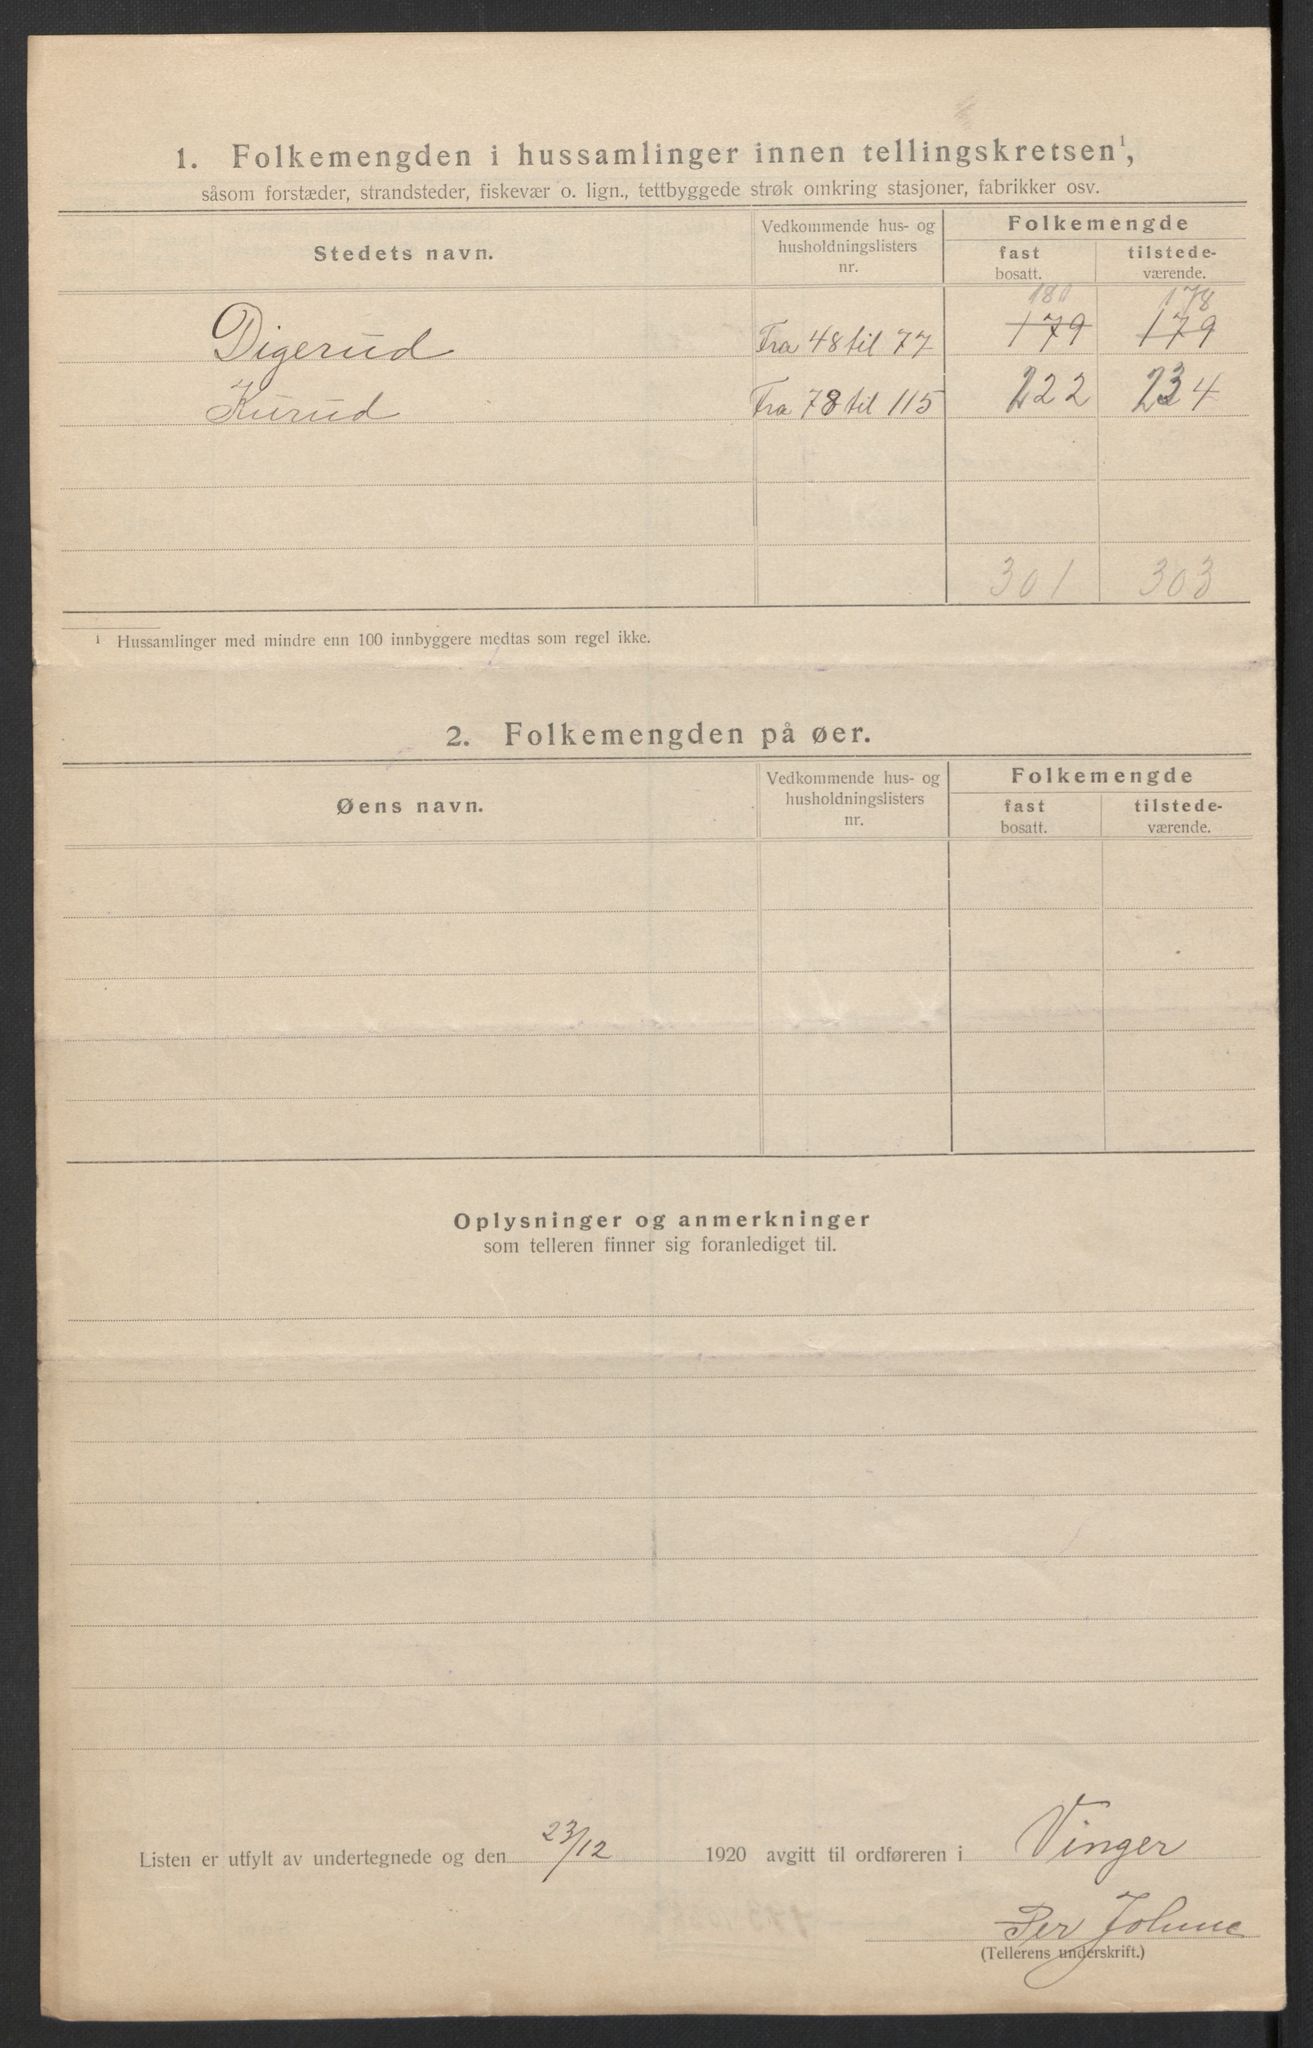 1. Folkemengden i hussamlinger innen tellingskretsen¹,
såsom forstæder, strandsteder, fiskevær o. lign., tettbyggede strøk omkring stasjoner, fabrikker osv.
Stedets navn.
Vedkommende hus- og husholdningslisters nr.
Folkemengde
fast bosatt.
tilstede-værende.
180 178
Digerud Fra 48 til 77 179 179
Kurud Fra 78 til 115 222 234
301 303
¹ Hussamlinger med mindre enn 100 innbyggere medtas som regel ikke.
2. Folkemengden på øer.
Øens navn.
Vedkommende hus- og husholdningslisters nr.
Folkemengde
fast bosatt.
tilstede-værende.
Oplysninger og anmerkninger
som telleren finner sig foranlediget til.
Listen er utfylt av undertegnede og den 23/12 1920 avgitt til ordføreren i Vinger
Per
(Tellerens underskrift.)